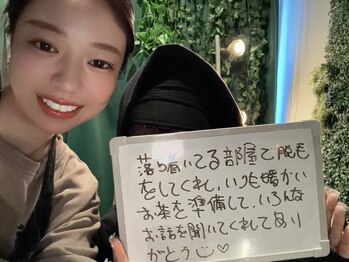 落ち着いてる部屋で脱毛
をしてくれ、いつも暖かい
お茶を準備して、いろんな
お話を聞いてくれてあり
がとう